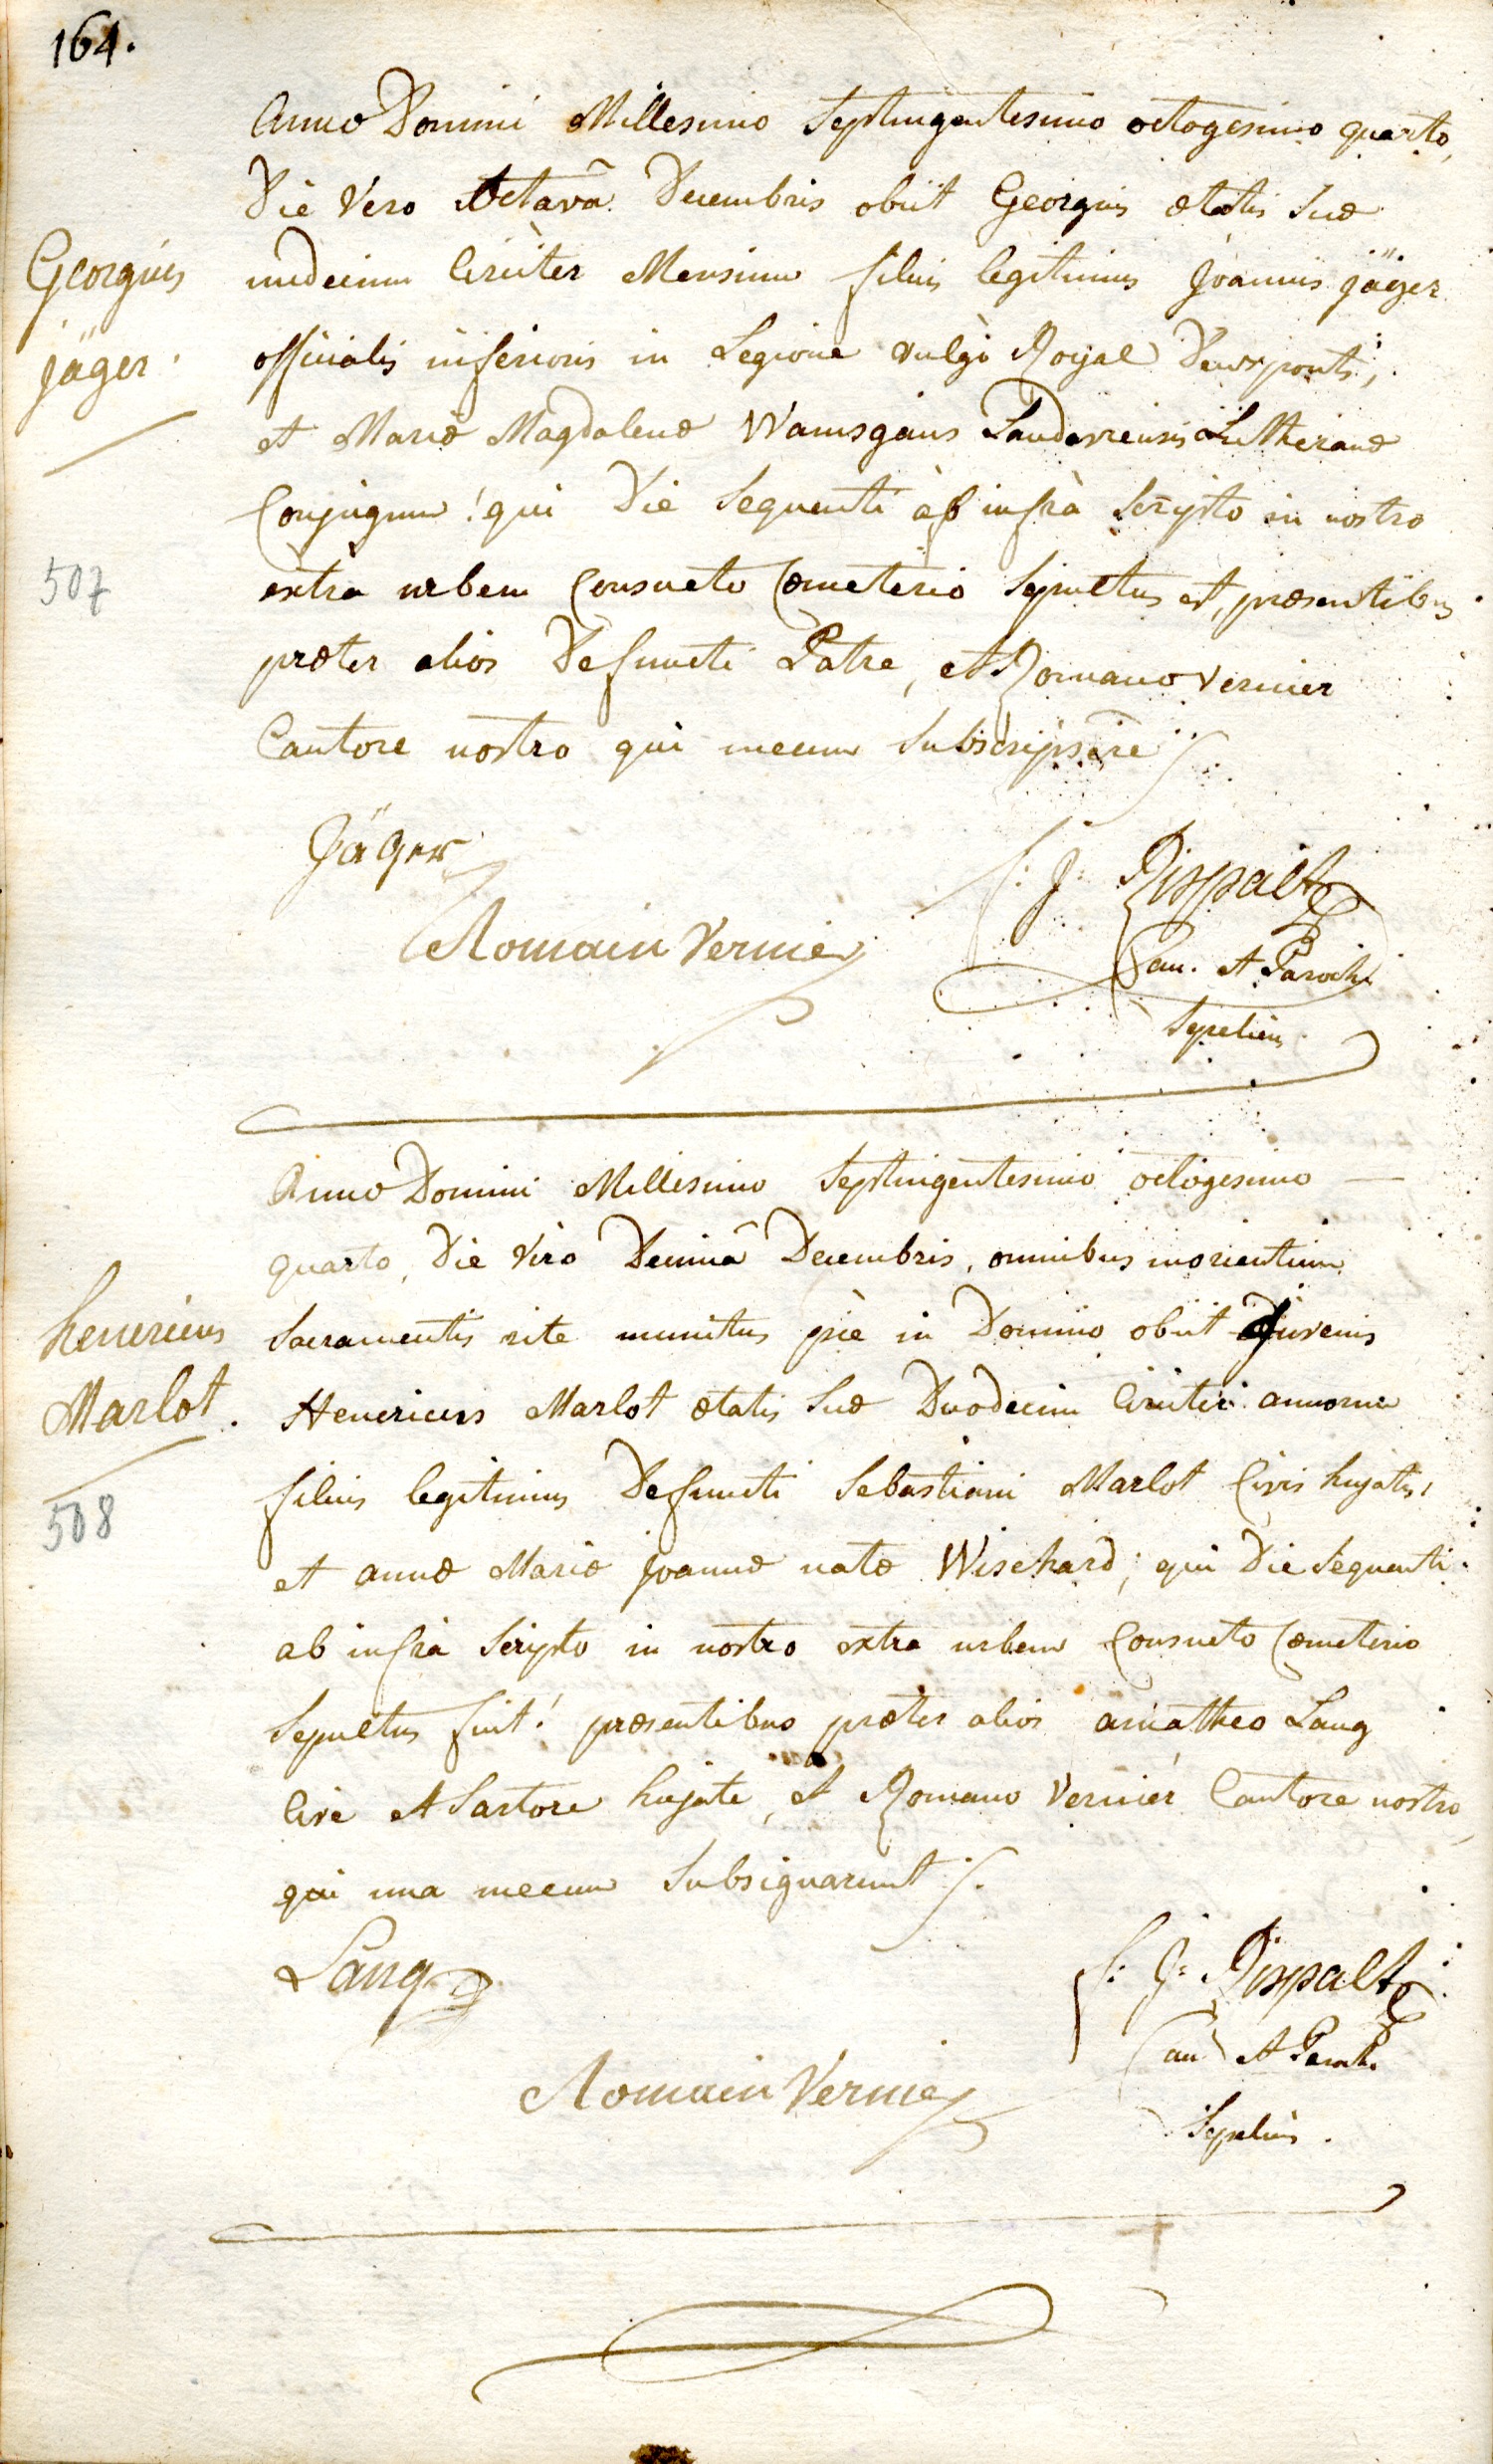 164.
Anno Domini Millesimo Septingentesimo octogesimo quarto,
Die Vero Octavâ Decembris obiit Georgius ætatis Suæ
Georgius
undecim Circiter Mensium filius legitimus Joannis jäger
jäger.
officialis inferioris in Legione vulgò Royal Deuxponts,
et Mariæ Magdalenæ Wamsgans Landaviensis Lutheranæ
Conjugum! qui Die Sequenti àb infrà Scripto in nostro
507
extra urbem Consueto Cœmeterio Sepultus est, præsentibus
præter alios Defuncti Patre, et Romano Vernier
Cantore nostro qui mecum Subscripsêre
Jäger
f: J: Rispalt
Romain Vernier
Can. et Paroch.
Sepeliens
Anno Domini Millesimo Septingentesimo octogesimo
quarto, Die Vero Decimâ Decembris, omnibus morientium
henericus
Sacramentis rite munitus piè in Domino obiit Juvenis
Marlot.
Henericus Marlot ætatis Suæ Duodecim Circiter annorum
508
filius legitimus Defuncti Sebastiani Marlot Civis hujatis,
et annæ Mariæ Joannæ natæ Wischard; qui Die Sequenti
ab infrà Scripto in nostro extra urbem Consueto Cœmeterio
Sepultus fuit! præsentibus præter alios amatheo Lang
Cive et Sartore hujate, et Romano Vernier Cantore nostro,
qui una mecum Subsignarunt
Lang
f: J: Rispalt
Can et Paroch.
Romain Vernier
Sepeliens.